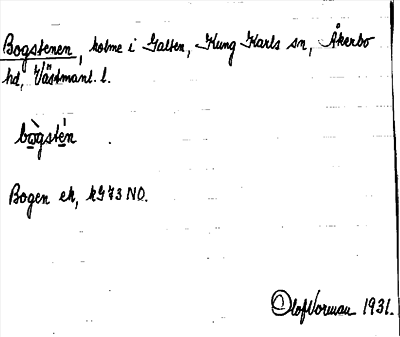 Bogstenen, holme i Galten, Kung Karls sn, Åkerbo
hd, Västmanl. l.
bògstén
Bogen ek, kG73 NO.
Olof Vorman 1931.